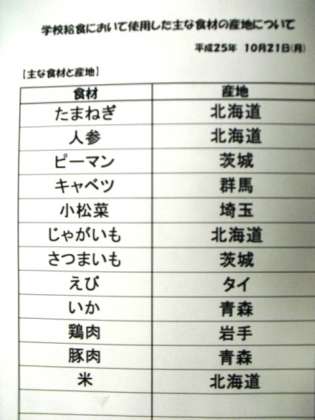 学校給食において使用した主な食材の産地について
平成25年 10月21日(月)
【主な食材と産地】
食材 産地
たまねぎ 北海道
人参 北海道
ピーマン 茨城
キャベツ 群馬
小松菜 埼玉
じゃがいも 北海道
さつまいも 茨城
えび タイ
いか 青森
鶏肉 岩手
豚肉 青森
米 北海道